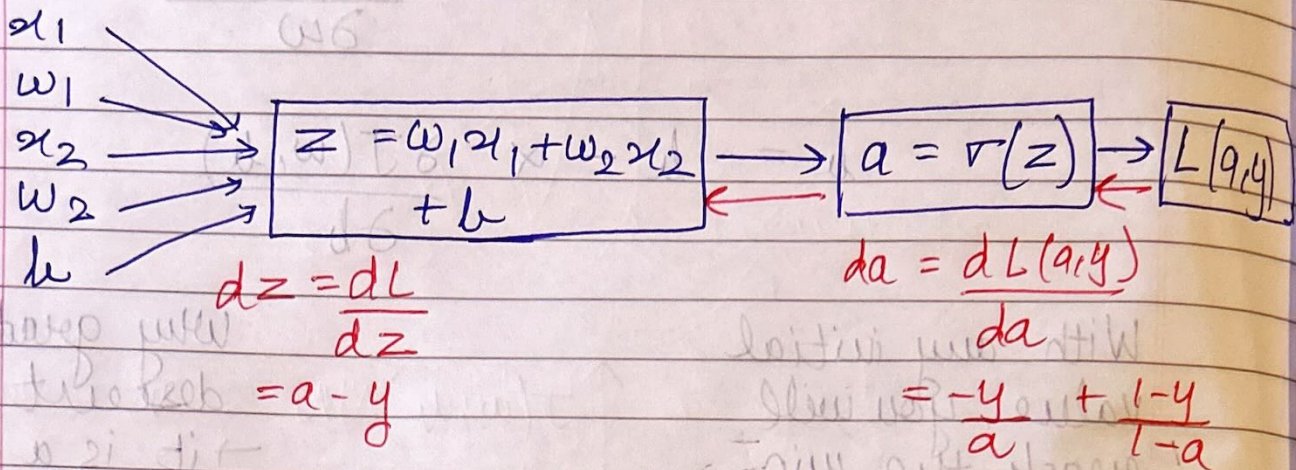 x1
w1
x2
w2
b
z = w1x1 + w2x2
+ b
a = σ(z)
L(a,y)
dz = dL
dz
= a - y
da = dL(a,y)
da
= -y/a + 1-y/1-a